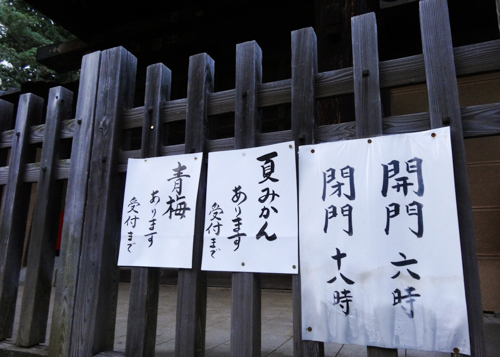 開門 六時
閉門 十八時
夏みかん
あります
受付まで
青梅
あります
受付まで